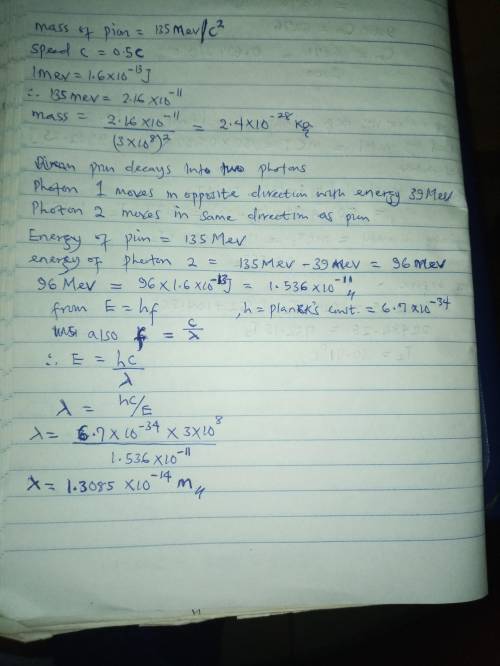 mass of pion = 135 Mev/c²
speed c = 0.5c
1mev = 1.6×10⁻¹³J
∴ 135mev = 2.16×10⁻¹¹
mass = 2.16×10⁻¹¹ / (3×10⁸)² = 2.4×10⁻²⁸ kg
pion decays into two photons
Photon 1 moves in opposite direction with energy 39Mev
Photon 2 moves in same direction as pion
Energy of pion = 135 Mev
energy of photon 2 = 135Mev - 39Mev = 96 Mev
96 Mev = 96×1.6×10⁻¹³J = 1.536×10⁻¹¹
from E = hf , h = plank's const. = 6.7×10⁻³⁴
also f = c/λ
∴ E = hc/λ
λ = hc/E
λ = 6.7×10⁻³⁴ × 3×10⁸ / 1.536×10⁻¹¹
λ = 1.3085 ×10⁻¹⁴ m